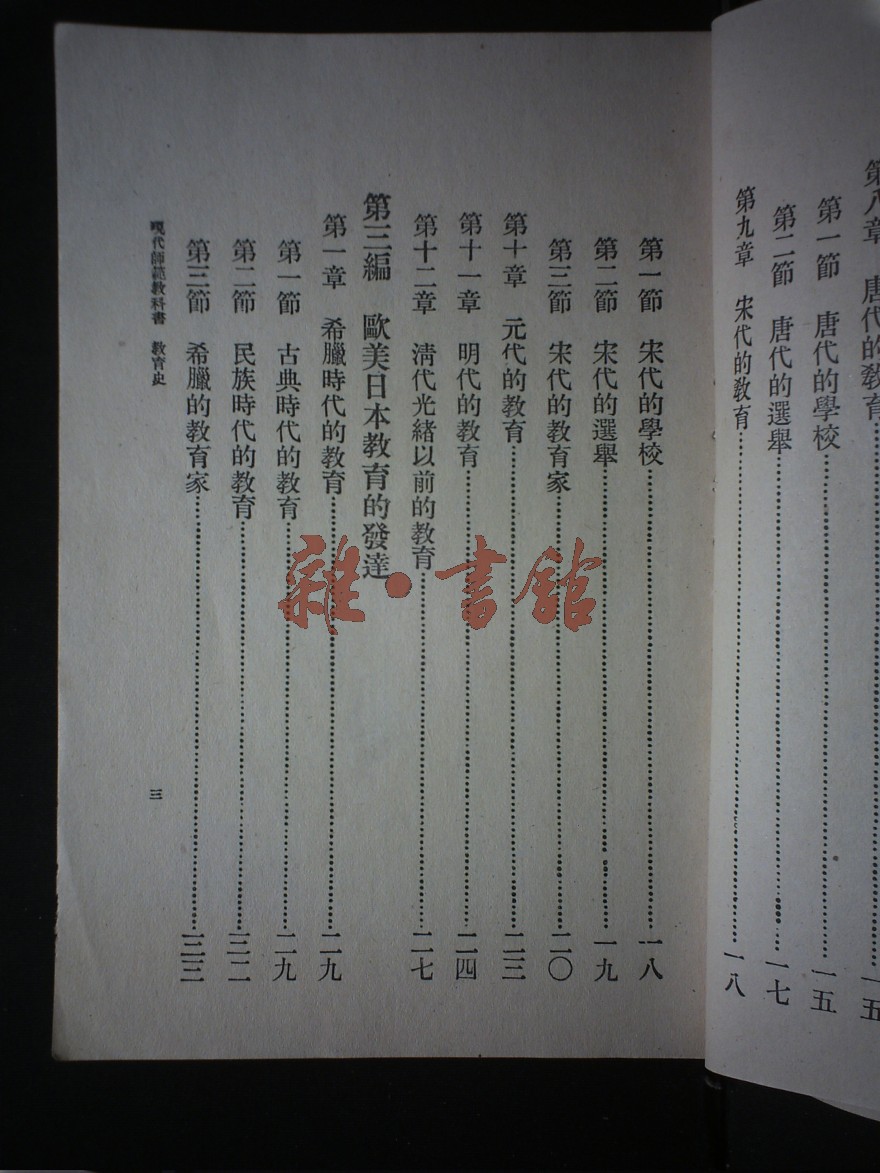 第八章　唐代的教育……一五
第一節　唐代的學校……一五
第二節　唐代的選舉……一七
第九章　宋代的教育……一八
第一節　宋代的學校……一八
第二節　宋代的選舉……一九
第三節　宋代的教育家……二〇
第十章　元代的教育……二三
第十一章　明代的教育……二四
第十二章　清代光緒以前的教育……二七
第三編　歐美日本教育的發達
第一章　希臘時代的教育……二九
第一節　古典時代的教育……二九
第二節　民族時代的教育……三二
第三節　希臘的教育家……三三
現代師範教科書　教育史
三
雜·書館